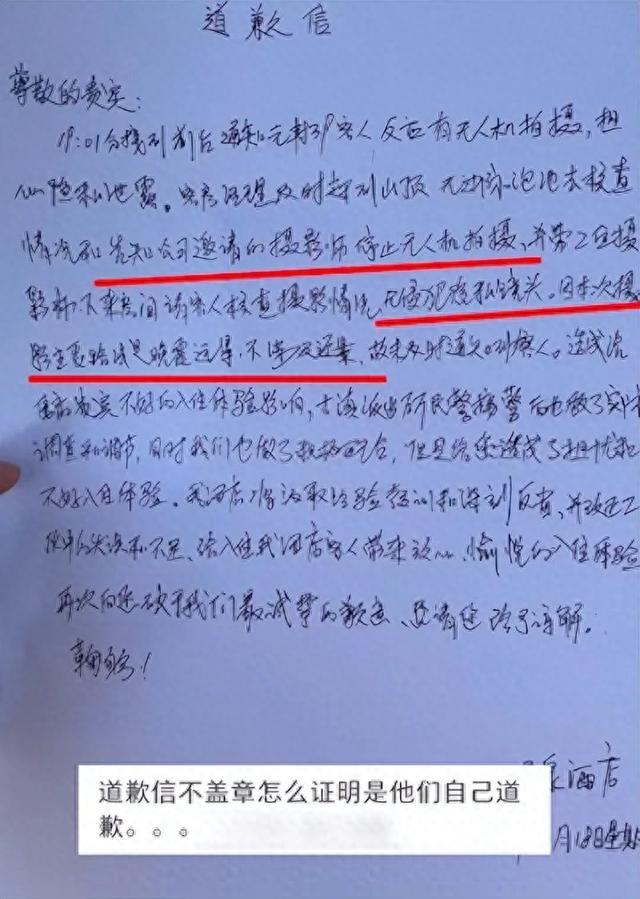 道歉信
尊敬的贵宾:
19:01分接到前台通知元利户客人反应有无人机拍摄,担
心隐私泄露。客房经理及时赶到山顶无边际泡池去核查
情况和告知公司邀请的摄影师停止无人机拍摄,并带2位摄
影师下来房间请客人核查摄影情况,无侵犯隐私镜头。因本次摄
影主要路线是晚霞远景,不涉及近景,故未及时通知到客人。造成给
您贵宾不好的入住体验影响,派出所民警接警后也做了实
调查和调节,同时我们也做了积极配合,但是给您造成了担忧和
不好入住体验。我酒店将汲取经验教训和深刻反省,并改正工
作中的失误和不足、给入住我酒店客人带来放心、愉悦的入住体验
再次向您致于我们最诚挚的歉意、恳请您给予谅解。
鞠躬!
泉酒店
月18日星期
道歉信不盖章怎么证明是他们自己道
歉。。。